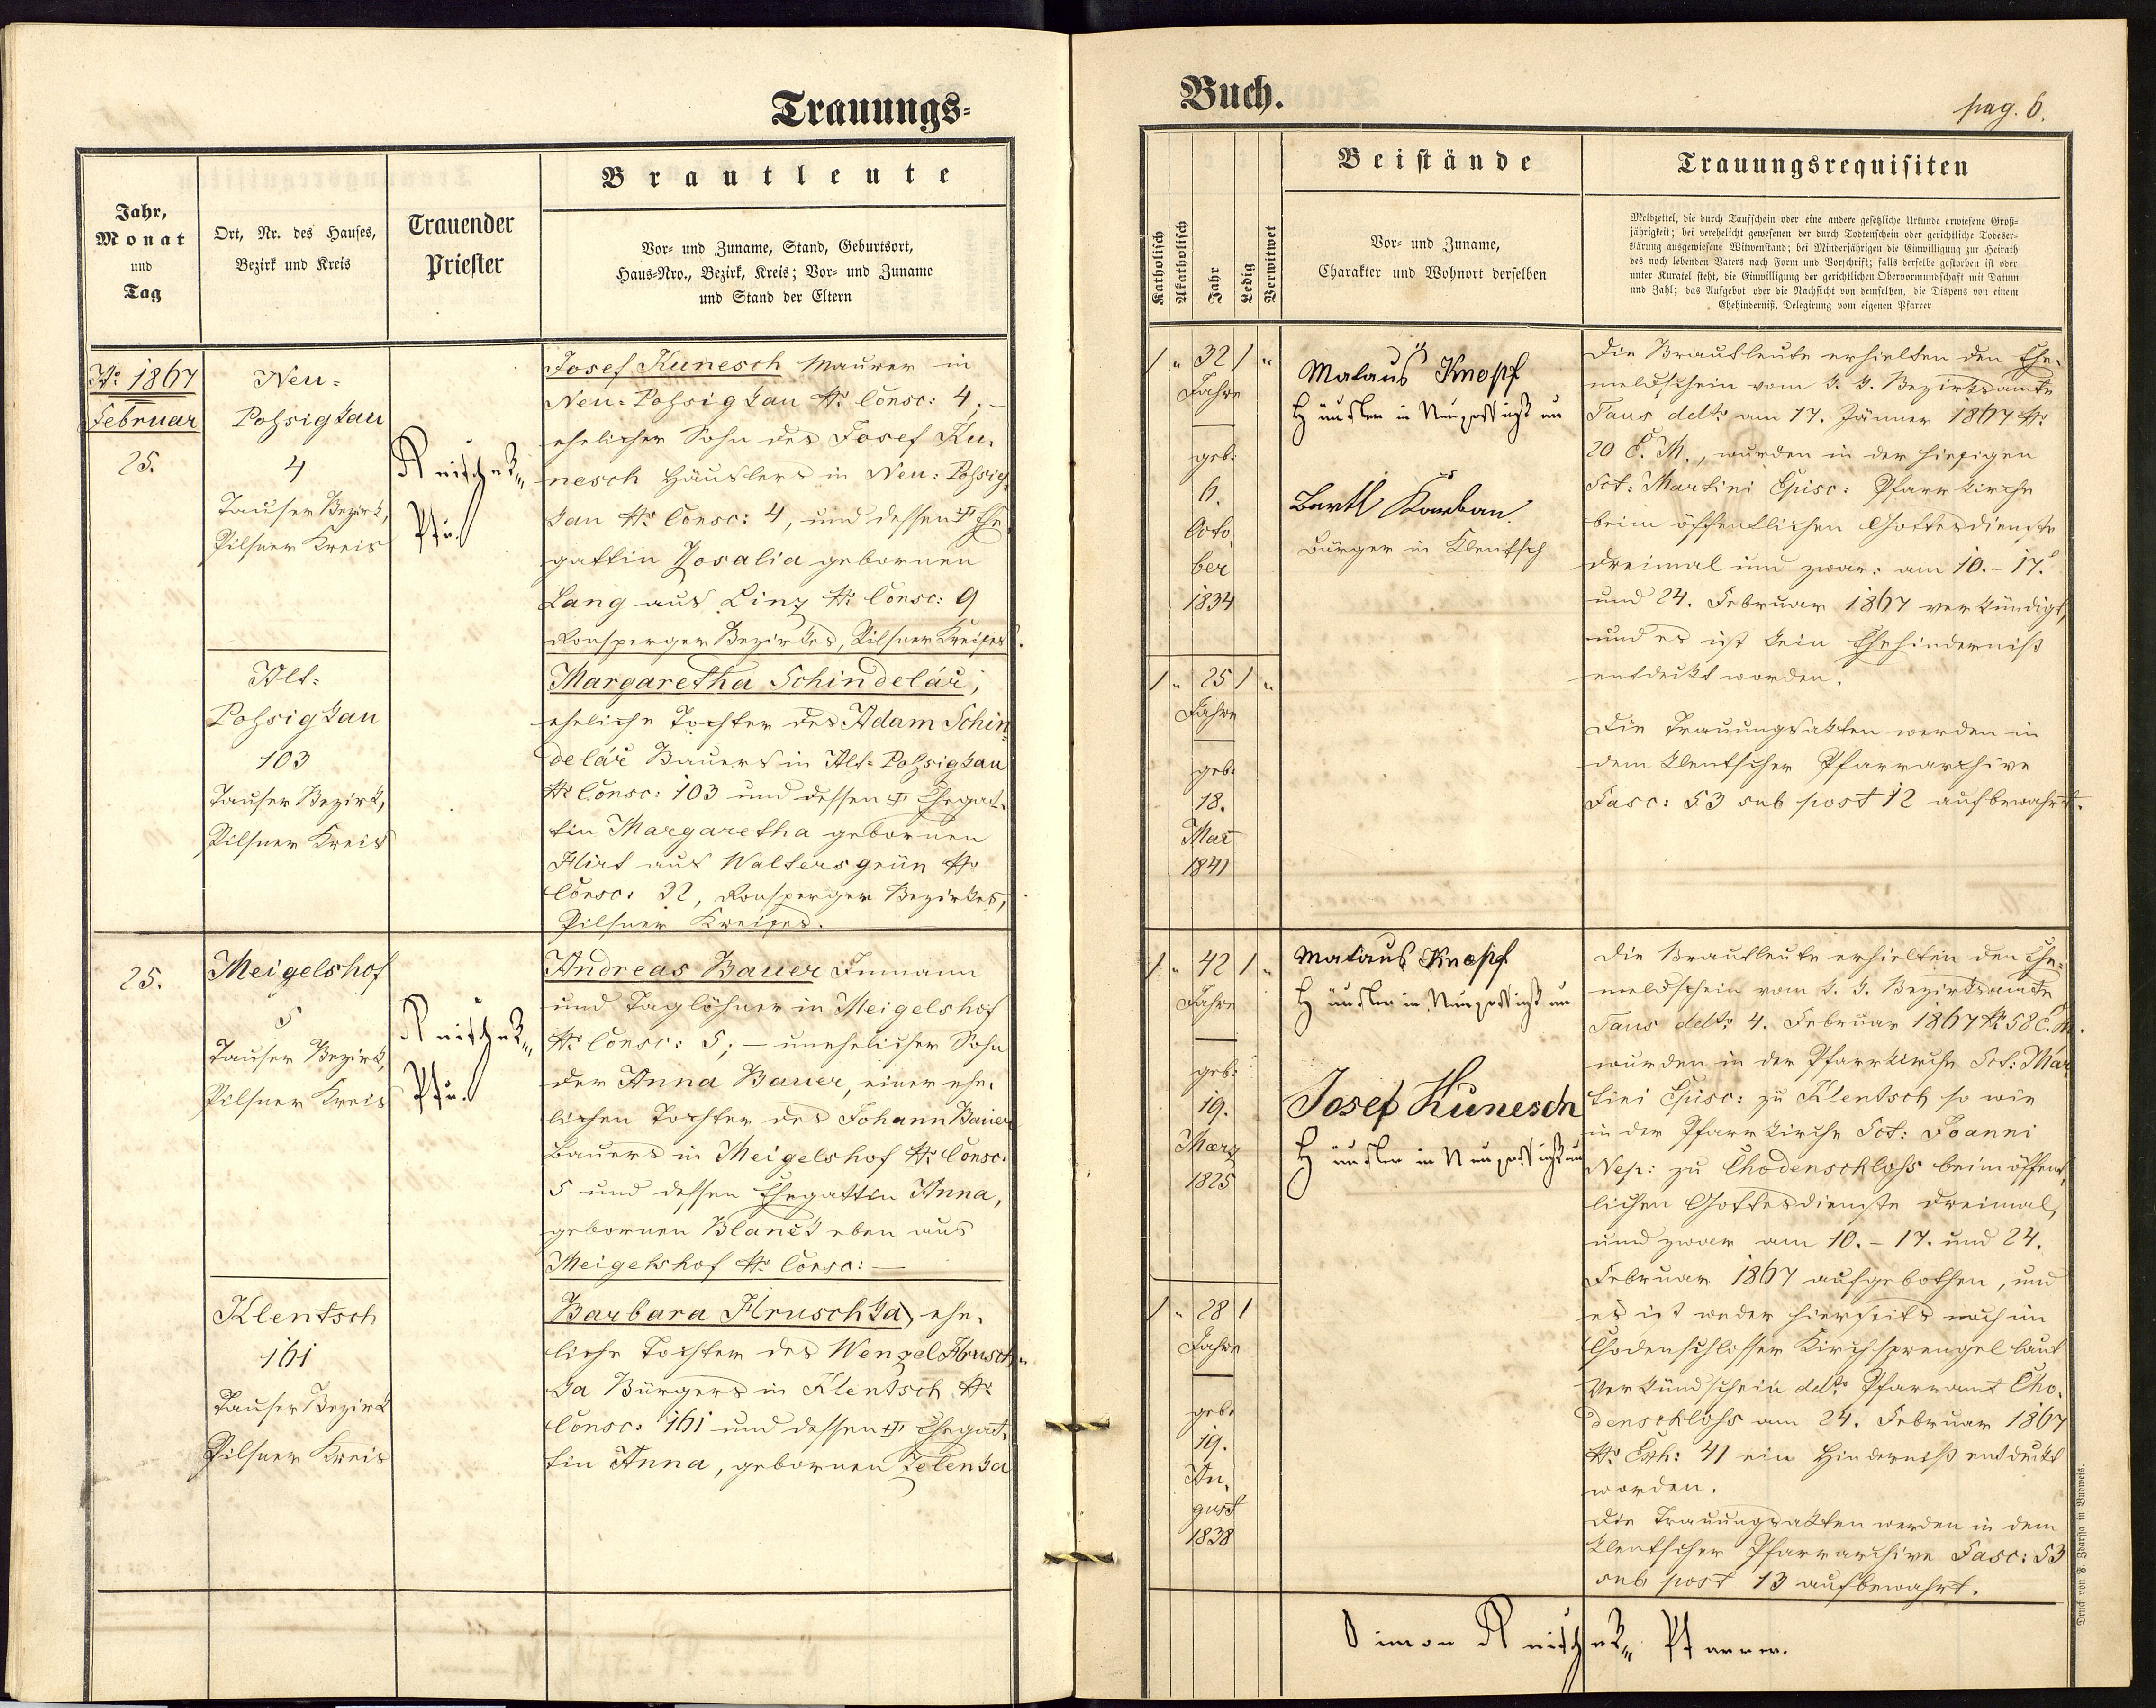 Trauungs-
Jahr,
Monat
und
Tag
Ort, Nr. des Hauses,
Bezirk und Kreis
Trauender
Priester
Brautleute
Vor- und Zuname, Stand, Geburtsort,
Haus-Nro., Bezirk, Kreis; Vor- und Zuname
und Stand der Eltern
No 1867
Februar
25.
Neu-
Poßigkau
4
Tauser Bezirk,
Pilsner Kreis
Pfr.
Josef Kunesch Maurer in
Neu-Poßigkau No Consc: 4, –
ehelicher Sohn des Josef Ku-
nesch Häuslers in Neu-Poßig-
kau No Consc: 4, und dessen Ehe-
gattin Rosalia gebornen
Lang aus Linz No Consc: 9
Ronsperger Bezirkes, Pilsner Kreises.
Alt-
Poßigkau
103
Tauser Bezirk,
Pilsner Kreis
Margaretha Schindelář,
eheliche Tochter des Adam Schin-
delář Bauers in Alt-Poßigkau
No Consc: 103 und dessen Ehegat-
tin Margaretha gebornen
Hirt aus Waltersgrün No
Consc: 32, Ronsperger Bezirkes,
Pilsner Kreises.
25.
Meigelshof
5
Tauser Bezirk,
Pilsner Kreis
Pfr.
Andreas Bauer Inmann
und Taglöhner in Meigelshof
No Consc: 5; – unehelicher Sohn
der Anna Bauer, einer ehe-
lichen Tochter des Johann Bauer
Bauers in Meigelshof No Consc.
5 und dessen Ehegattin Anna,
gebornen eben aus
Meigelshof No Consc: –
Klentsch
161
Tauser Bezirk
Pilsner Kreis
Barbara Hruschka, ehe-
liche Tochter des Wenzel Hrusch-
ka Bürgers in Klentsch No
Consc: 161 und dessen Ehegat-
tin Anna, gebornen Zelenka
Buch.
pag. 6.
Katholisch
Akatholisch
Jahr
Ledig
Verwitwet
Beistände
Vor- und Zuname,
Charakter und Wohnort derselben
Trauungsrequisiten
Meldzettel, die durch Taufschein oder eine andere gesetzliche Urkunde erwiesene Groß-
jährigkeit; bei verehelicht gewesenen der durch Todtenschein oder gerichtliche Todeser-
klärung ausgewiesene Witwenstand; bei Minderjährigen die Einwilligung zur Heirath
des noch lebenden Vaters nach Form und Vorschrift; falls derselbe gestorben ist oder
unter Kuratel steht, die Einwilligung der gerichtlichen Obervormundschaft mit Datum
und Zahl; das Aufgebot oder die Nachsicht von demselben, die Dispens von einem
Ehehinderniß, Delegirung vom eigenen Pfarrer
1 " 32 1 "
Jahre
geb:
6.
Octo-
ber
1834
Mataus Knopf
Häusler in Neupossigkau
Bartl Karban.
Bürger in Klentsch
Die Brautleute erhielten den Ehe-
meldschein vom k. k. Bezirksamte
Taus ddto am 17. Jänner 1867 No
20 E. M., wurden in der hiesigen
Sct: Martini Episc: Pfarrkirche
beim öffentlichen Gottesdienste
dreimal und zwar: am 10. – 17.
und 24. Februar 1867 verkündigt,
und es ist kein Ehehinderniß
entdeckt worden.
Die Trauungsakten werden in
dem Klentscher Pfarrarchive
Fasc: 53 sub post 12 aufbewahrt.
1 " 25 1 "
Jahre
geb:
18.
Mai
1841
1 " 42 1 "
Jahre
geb:
19.
Maerz
1825
Mataus Knopf
Häusler in Neupossigkau
Josef Kunesch
Häusler in Neupossigkau
Die Brautleute erhielten den Ehe-
meldschein vom k. k. Bezirksamte
Taus ddto 4. Februar 1867 No 58 E. M.
wurden in der Pfarrkirche Sct: Mar-
tini Episc: zu Klentsch so wie
in der Pfarrkirche Sct: Joanni
Nep: zu Chodenschloss beim öffent-
lichen Gottesdienste dreimal,
und zwar am 10. – 17. und 24.
Februar 1867 aufgebothen, und
es ist weder hierseits noch im
Chodenschlosser Kirchsprengel laut
Verkündschein ddto Pfarramt Cho-
denschloss am 24. Februar 1867
No Exh: 41 ein Hinderniß entdeckt
worden.
Die Trauungsakten werden in dem
Klentscher Pfarrarchive Fasc: 53
sub post 13 aufbewahrt.
1 " 28 1
Jahre
geb:
19.
Au-
gust
1838
Simon Pfarrer.
Druck von F. Zdarssa in Budweis.